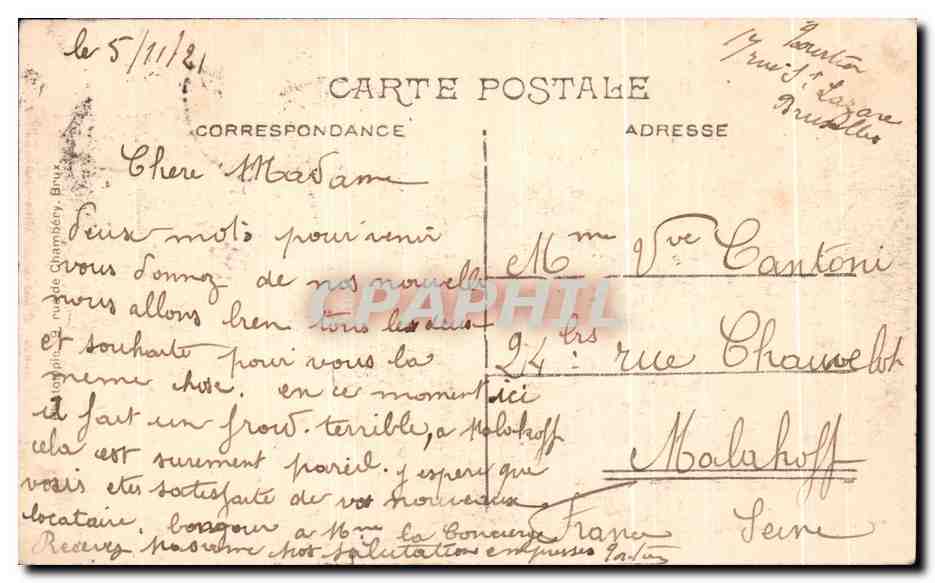 le 5/11/21
17 rue St Lazare
Bruxelles
CARTE POSTALE
CORRESPONDANCE
ADRESSE
Chere Madame
deux mots pour venir
vous donnoz de nos nouvelle
nous allons bien tous les deus
et souhaite pour vous la
meme chose. en ce moment ici
il fait un froid. terrible, a Malakoff
cela est surement pareil. j espere que
vous etes satisfaite de vos nouveaux
locataire. bongour a Mme la Concierge
Recevez Madame nos salutation empresses
Mme Vve Cantoni
24 brs rue Chauvelot
Malakoff
France Seine
rue de Chambéry, Brux
CPAPHIL